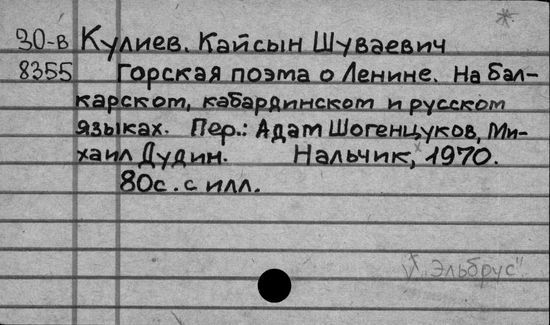 30-в Кулиев. Кайсын Шуваевич
8355 Горская поэма о Ленине. На бал-
карском, кабардинском и русском
языках. Пер.: Адам Шогенцуков, Ми-
хаил Дудин. Нальчик, 1970.
80с. с илл.
"Эльбрус"